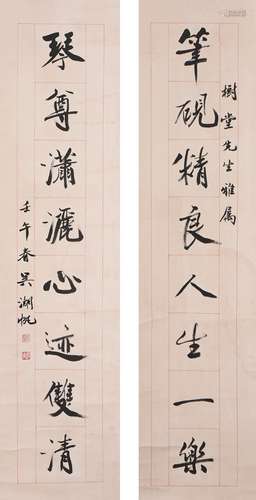 樹堂先生雅属
筆硯精良人生一樂
琴尊瀟灑心迹雙清
壬午春吳湖帆